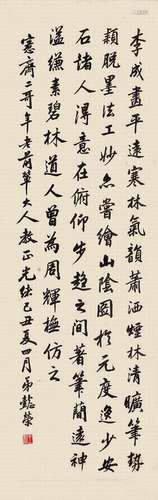 李成畫平遠寒林氣韻蕭洒煙林清曠筆勢
穎脫墨法工妙亦嘗繪山陰圖於元度逸少安
石諸人得意在俯仰步趨之間著筆簡遠神
溢縑素碧林道人曾為周輝楹仿之
愙齋二哥年老前輩大人教正光緒己丑夏四月弟懿榮